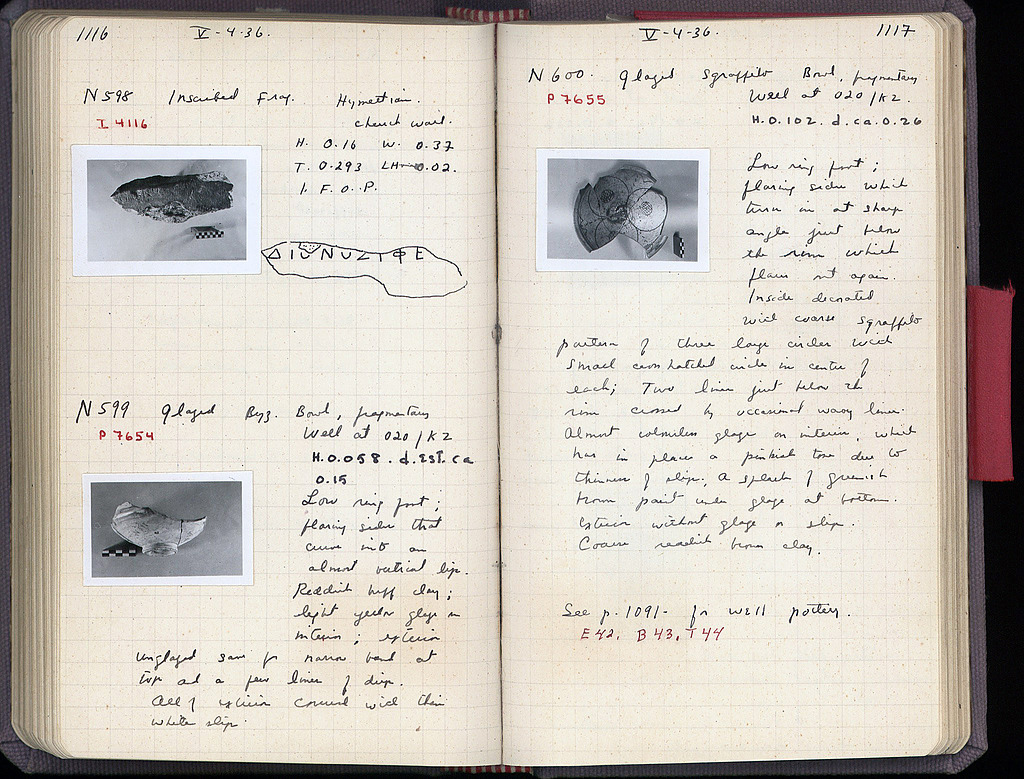 1116
V-4-36.
N598 Inscribed Frag. Hymettian.
I 4116
church wall.
H. 0.16 W. 0.37
T. 0.293 LH 0.02.
1. F. O. P.
ΔΙΟΝΥΣΙΦΕ
N599 Glazed Byz. Bowl, fragmentary
P 7654
Well at 020/KZ
H.0.058. d.EST.ca
0.15
Low ring foot;
flaring sides that
curve into an
almost vertical lip.
Reddish buff clay;
light yellow glaze on
interior; exterior
unglazed save for narrow band at
top and a few lines of drip.
All of exterior covered with thin
white slip.
V-4-36.
1117
N600. Glazed Sgraffito Bowl, fragmentary
P 7655
Well at 020/KZ.
H.0.102. d.ca.0.26
Low ring foot;
flaring sides which
turn in at sharp
angle just below
the rim which
flares out again.
Inside decorated
with coarse sgraffito
pattern of three large circles with
small cross hatched circle in centre of
each; Two lines just below the
rim crossed by occasional wavy lines.
Almost colorless glaze on interior, which
has in places a pinkish tone due to
thinness of slip. A splash of greenish
brown paint under glaze at bottom.
Exterior without glaze or slip.
Coarse reddish brown clay.
See p. 1091- for well pottery.
E42, B43, T44